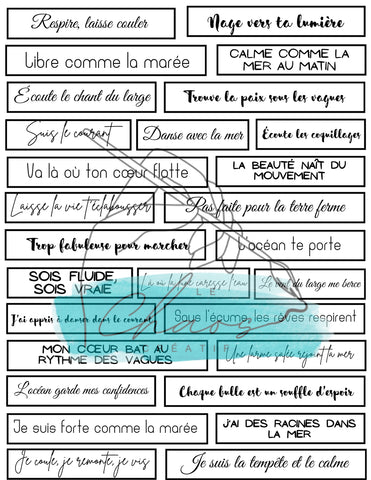 Respire, laisse couler
Nage vers ta lumière
Libre comme la marée
CALME COMME LA
MER AU MATIN
Écoute le chant du large
Trouve la paix sous les vagues
Suis le courant
Danse avec la mer
Écoute les coquillages
Va là où ton cœur flotte
LA BEAUTÉ NAÎT DU
MOUVEMENT
Laisse la vie t'éclabousser
Pas faite pour la terre ferme
Trop fabuleuse pour marcher
L'océan te porte
SOIS FLUIDE,
SOIS VRAIE
Là où la vague caresse l'eau
Le vent du large me berce
LE
Chaos
CRÉATIF
J'ai appris à danser dans le courant
Sous l'écume, les rêves respirent
MON CŒUR BAT AU
RYTHME DES VAGUES
Une larme salée rejoint la mer
L'océan garde mes confidences
Chaque bulle est un souffle d'espoir
Je suis forte comme la marée
J'AI DES RACINES DANS
LA MER
Je coule, je remonte, je vis
Je suis la tempête et le calme